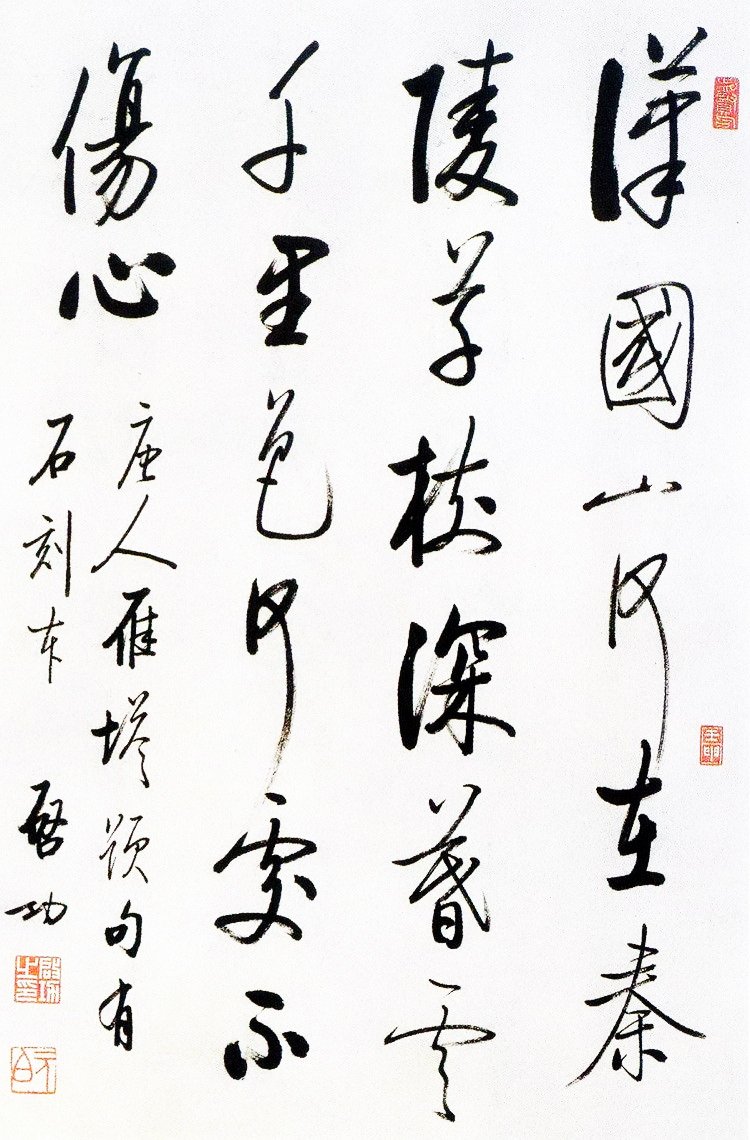 漢國山河在秦
陵草樹深暮雲
千里色何處不
傷心
唐人雁塔題句有
石刻本 啓功
啓功之印
元白